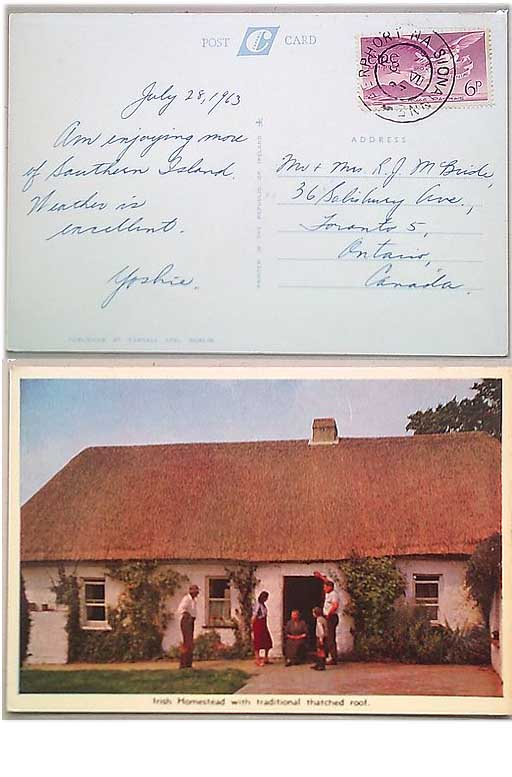 POST CARD
6P
July 28, 1963
Am enjoying more
of Southern Island.
Weather is
excellent.
Yoshie.
ADDRESS
Mr + Mrs. R. J. McBride,
36 Salisbury Ave.,
Toronto 5,
Ontario,
Canada.
PRINTED IN THE REPUBLIC OF IRELAND
PUBLISHED BY LTD., DUBLIN
Irish Homestead with traditional thatched roof.